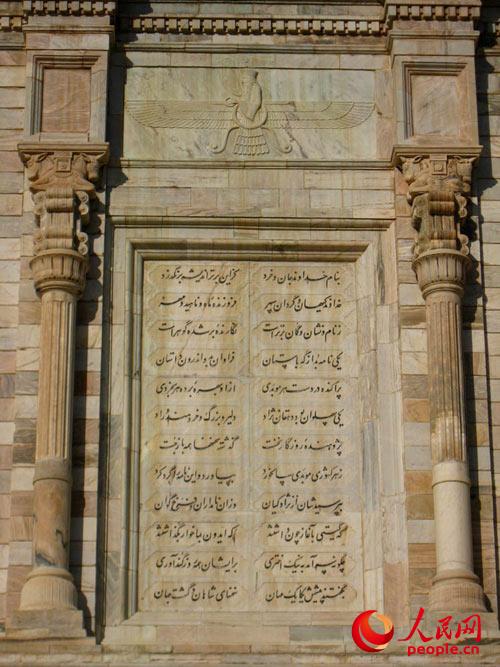 بنام خداوند جان و خرد کزین برتر اندیشه برنگذرد
خداوند کیهان و گردان سپهر فروزنده ماه و ناهید و مهر
ز نام و نشان و گمان برتر است نگارنده برشده گوهر است
یکی نامه بد از گه باستان فراوان بدو اندرون داستان
پراکنده در دست هر موبدی ازو بهره برده هر بخردی
یکی پهلوان بود دهقان نژاد دلیر و بزرگ و خردمند و راد
پژوهنده روزگار نخست گذشته سخنها همه بازجست
ز هر کشوری موبدی سالخورد بیاورد و این نامه را گرد کرد
بپرسیدشان از نژاد کیان وزان نامداران فرخ گوان
که گیتی بآغاز چون داشتند که ایدون بما خوار بگذاشتند
چگونه سرآمد به نیک اختری برایشان همه روز گندآوری
بگفتند پیشش یکایک مهان سخنهای شاهان و گشت جهان
人民网
people.cn
人民网
people.cn